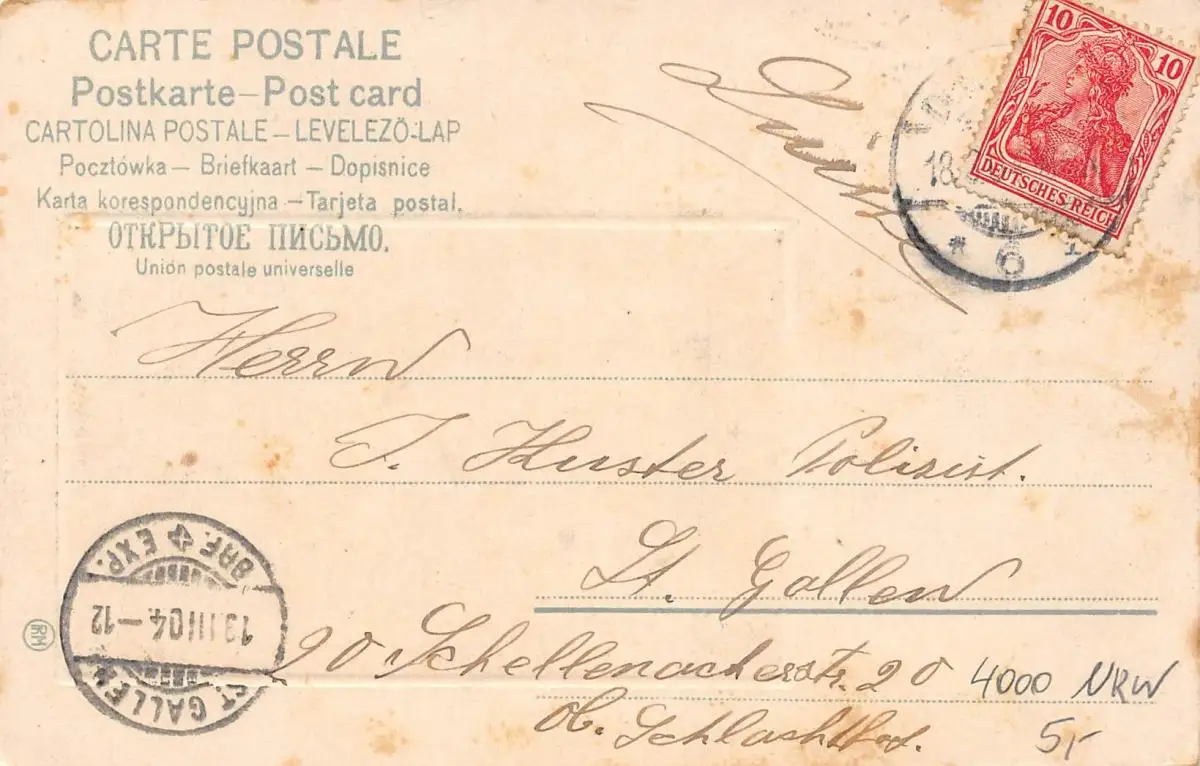 CARTE POSTALE
Postkarte – Post card
CARTOLINA POSTALE – LEVELEZŐ-LAP
Pocztówka – Briefkaart – Dopisnice
Karta korespondencyjna – Tarjeta postal.
ОТКРЫТОЕ ПИСЬМО.
Unión postale universelle
10 10
DEUTSCHES REICH
18.
* 6
Herrn
J. Huster Polizist.
St. Gallen
20 Schellenackerstr. 20
ob. Schlachthof.
ST. GALLEN
13.III.04.–12
BRF. EXP.
RM
4000 NRW
5,-